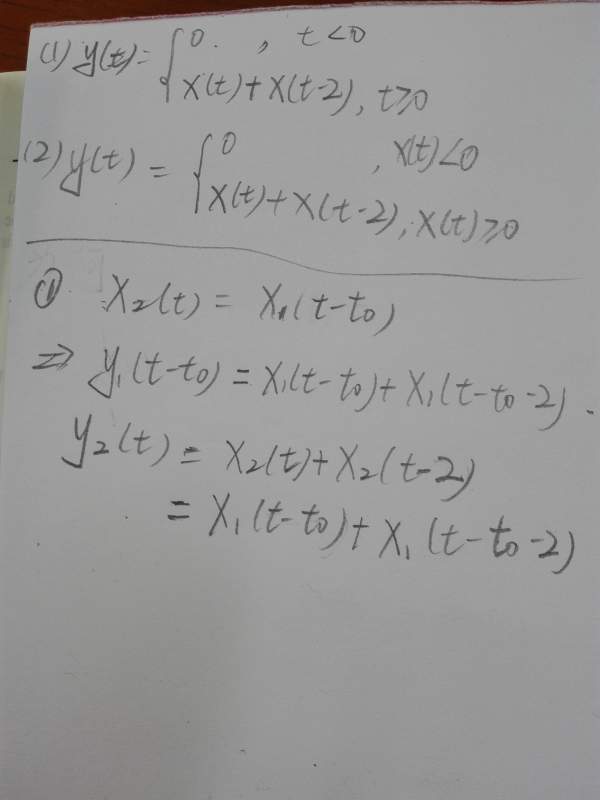 (1) y(t) = { 0 , t<0
x(t)+x(t-2), t≥0
(2) y(t) = { 0 , x(t)<0
x(t)+x(t-2), x(t)≥0
① x₂(t) = x₁(t-t₀)
⇒ y₁(t-t₀) = x₁(t-t₀)+x₁(t-t₀-2).
y₂(t) = x₂(t)+x₂(t-2)
= x₁(t-t₀)+x₁(t-t₀-2)